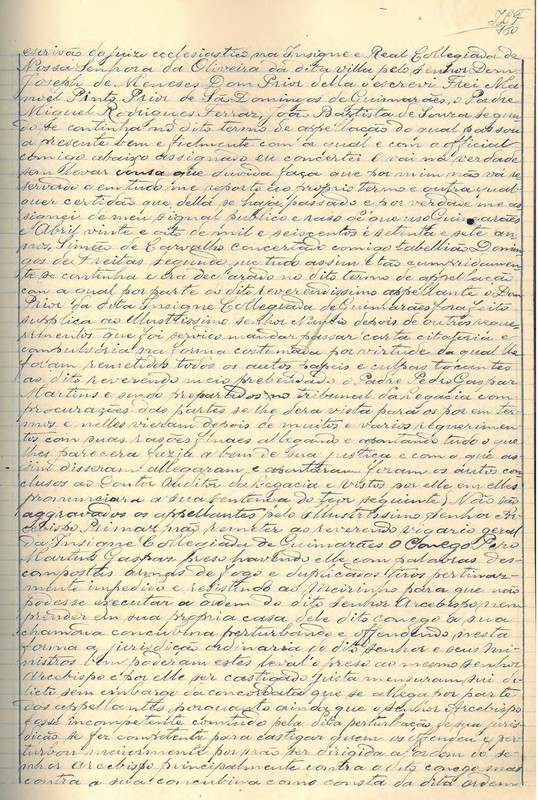 escrivão do juizo ecclesiastico na Insigne e Real Collegiada de
Nossa Senhora da Oliveira da dita villa pelo Senhor Dom
Joseph de Meneses Dom Prior della o escrevi Frei Ma-
noel Pinto Prior de São Domingos de Guimarães, o Padre
Miguel Rodrigues Ferraz, João Baptista de Souza segun
do se continha no dito termo de appellação do qual passou
a presente bem e fielmente com a qual e com o official
comigo abaixo assignado eu concertei e vai na verdade
sem levar cousa que duvida faça que por mim não vá re-
servado e em tudo me reporto ao proprio termo e outra qual-
quer certidão que della se haja passado e por verdade me as-
signei de meu signal publico e raso de que uso Guimarães
e Abril vinte e oito de mil e seiscentos e setenta e sete an-
nos, Simão de Carvalho concertado comigo tabellião Domin
gos de Freitas segundo que tudo assim e tão cumpridamen
te se continha e era declarado no dito termo de appellação
com a qual por parte do dito reverendissimo appellante o Dom
Prior da dita Insigne Collegiada de Guimarães fora feito
supplica ao Illustrissimo senhor Nuncio depois de outros reque
rimentos que foi servido mandar passar carta citatoria e
compulsoria na forma costumada por virtude da qual lhe
foram remettidos todos os autos papeis e culpas tocantes
ao dito reverendo meio prebendado o Padre Pedro Gaspar
Martins e sendo preparados no tribunal da legacia com
procurações das partes se lhe dera vista para os por em ter-
mos, e nelles vieram depois de muitos e varios requerimen-
tos com suas rasões finaes allegando e apontando tudo o que
lhes parecera fazia a bem de sua justiça e com o que as
sim disseram allegaram e apontaram foram os autos con
clusos ao Doutor Auditor da legacia e vistos por elle em elles
pronunciara a sua sentença do teor seguinte, Não são
aggravados os appellantes pelo Illustrissimo Senhor Ar-
cebispo Primaz não remeter ao reverendo vigario geral
da Insigne Collegiada de Guimarães o Conego Pedro
Martins Gaspar preso havendo elle com palavras des-
compostas armas de fogo e duplicados tiros pertinaz-
mente impedido e resistindo ao meirinho para que não
podesse executar a ordem do dito Senhor Arcebispo nem
prender em sua propria casa delle dito conego a sua
chamada concubina perturbando e offendendo nesta
forma a jurisdição ordinaria do dito senhor e seus Mi-
nistros bem poderam estes leval-o preso ao mesmo senhor
Arcebispo e por elle ser castigado juxta mensuram sui de-
licto sem embargo da concordata que se allega por parte
dos appellantes porquanto ainda que o senhor Arcebispo
fosse incompetente comtudo pela dita perturbação de sua juris-
dição se fez competente para castigar quem os offendeu e per-
turbou maiormente por não ser dirigida a ordem do se-
nhor Arcebispo principalmente contra o dito conego mas
contra a sua concubina como consta da dita ordem